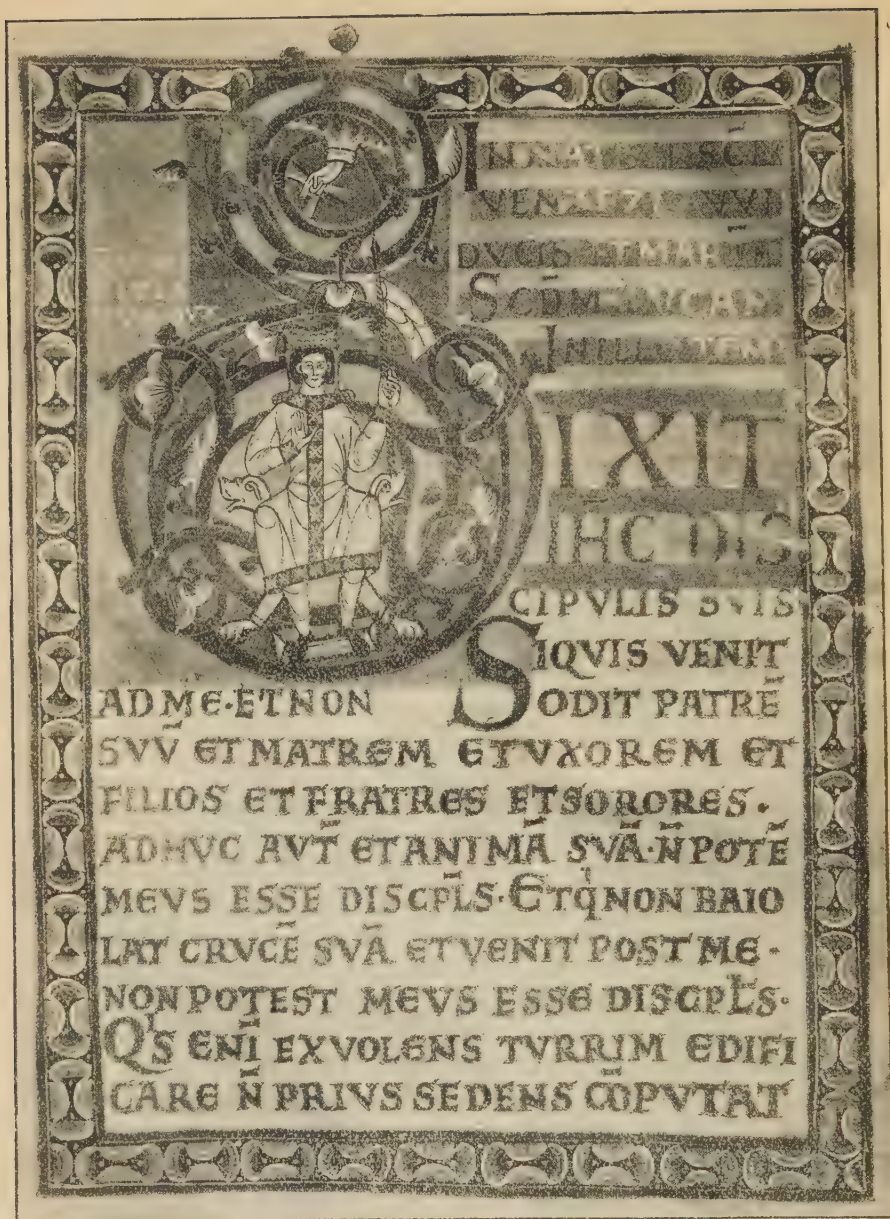 DVCIS
IN ILLO
IXIT
IHC DIS
CIPVLIS SVIS
SIQVIS VENIT
AD ME·ET NON ODIT PATRĒ
SVV̄ ET MATREM ET VXOREM ET
FILIOS ET FRATRES ET SORORES.
ADHVC AVT̄ ET ANIMĀ SVĀ·N̄ POTĒ
MEVS ESSE DISCPL̄S·ET qⁱ NON BAIO
LAT CRVCĒ SVĀ ET VENIT POST ME·
NON POTEST MEVS ESSE DISCPL̄S·
QⁱS ENĪ EX VOLENS TVRRIM EDIFI
CARE N̄ PRIVS SEDENS CŌPVTAT